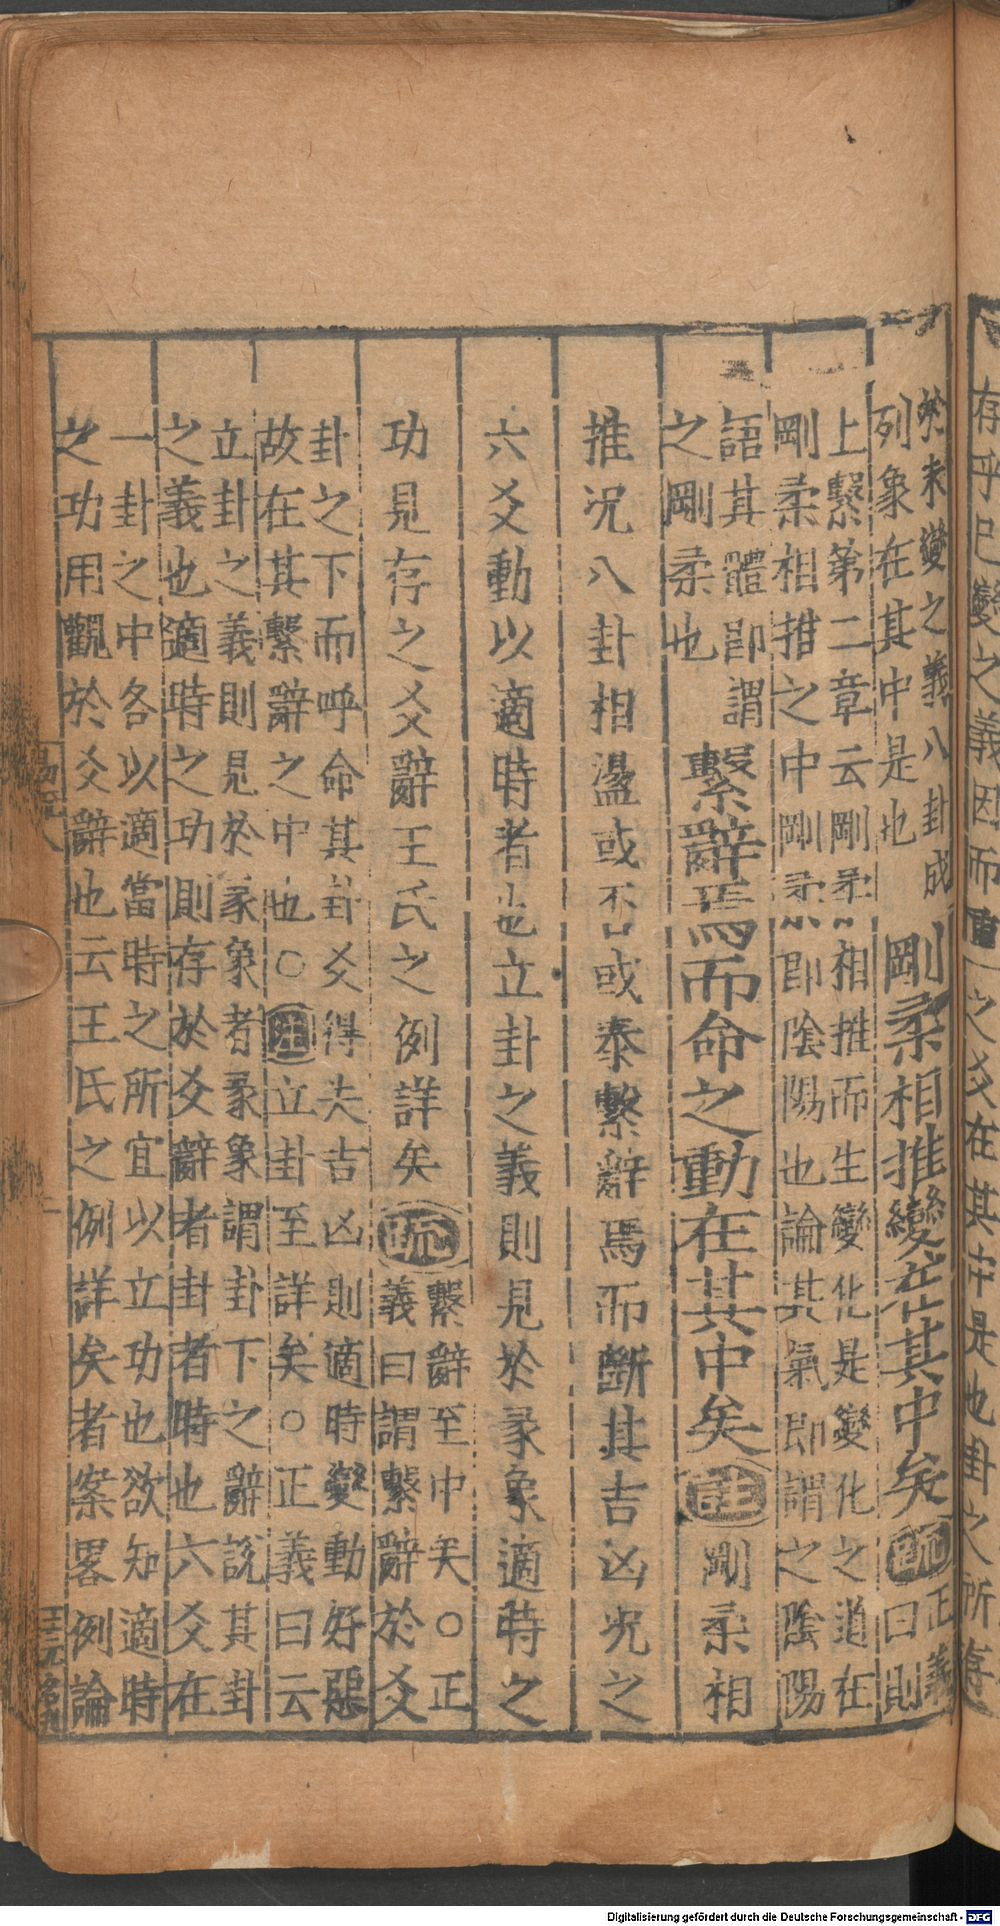 存乎已變之義因而重之爻在其中是也卦之所存
於未變之義八卦成
列象在其中是也
剛柔相推變在其中矣
疏
正義
曰則
上繫第二章云剛柔相推而生變化是變化之道在
剛柔相推之中剛柔即陰陽也論其氣即謂之陰陽
語其體即謂
之剛柔也
繫辭焉而命之動在其中矣
註
剛柔相
推况八卦相盪或否或泰繫辭焉而斷其吉凶况之
六爻動以適時者也立卦之義則見於彖象適時之
功見存之爻辭王氏之例詳矣
疏
繫辭至中矣○正
義曰謂繫辭於爻
卦之下而呼命其卦爻得失吉凶則適時變動好惡
故在其繫辭之中也○註立卦至詳矣○正義曰云
立卦之義則見於彖象者彖象謂卦下之辭說其卦
之義也適時之功則存於爻辭者卦者時也六爻在
一卦之中各以適當時之所宜以立功也欲知適時
之功用觀於爻辭也云王氏之例詳矣者案畧例論
Digitalisierung gefördert durch die Deutsche Forschungsgemeinschaft - DFG